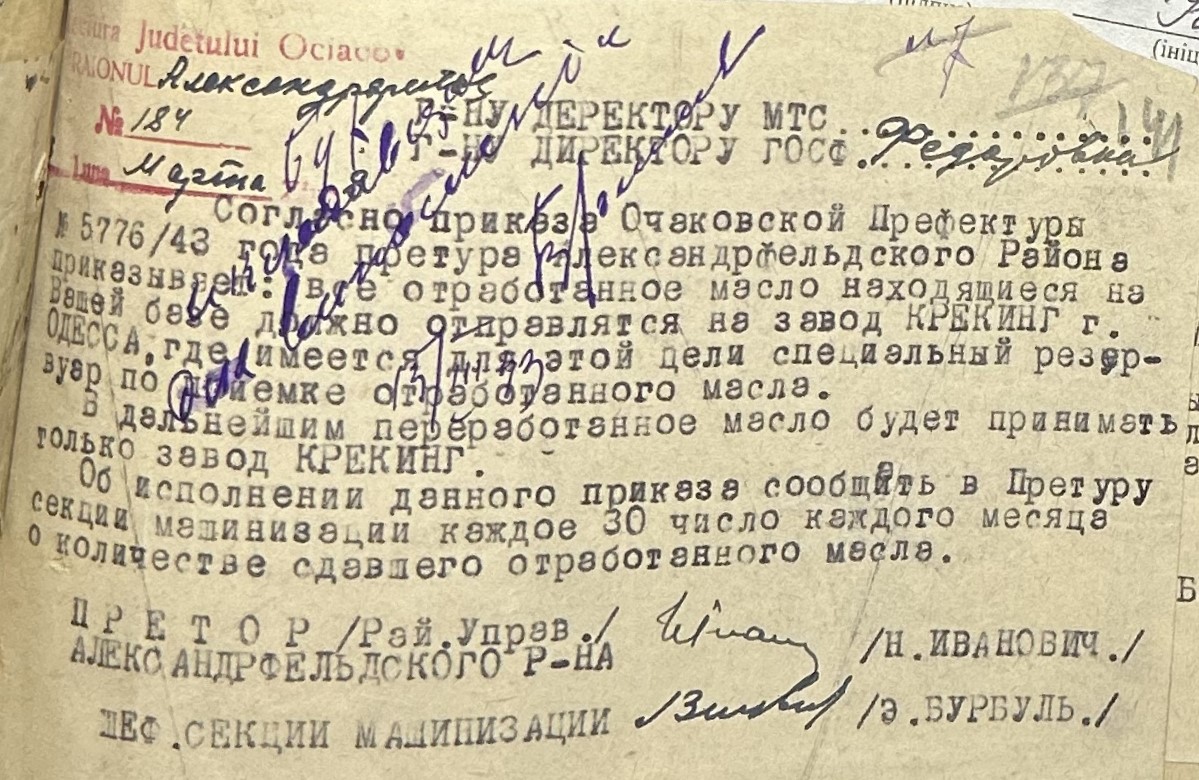 Județului Ociacov
RAIONUL Александрфельд
№ 184
Luna Марта
Г-НУ ДЕРЕКТОРУ МТС
Г-НУ ДИРЕКТОРУ ГОСФ. Федоровка
137
141
Согласно приказа Очаковской Префектуры
№ 5776/43 года претура Александрфельдского Района
приказывает: все отработанное масло находящиеся на
Вашей базе должно отправлятся на завод КРЕКИНГ г.
ОДЕССА, где имеется для этой цели специальный резер-
вуар по приемке отработанного масла.
В дальнейшим переработанное масло будет принимать
только завод КРЕКИНГ.
Об исполнении данного приказа сообщать в Претуру
секции машинизации каждое 30 число каждого месяца
о количестве сдавшего отработанного масла.
П Р Е Т О Р /Рай.Управ./ /Н.ИВАНОВИЧ./
АЛЕКСАНДРФЕЛЬДСКОГО Р-НА
ШЕФ.СЕКЦИИ МАШИНИЗАЦИИ /Э.БУРБУЛЬ./